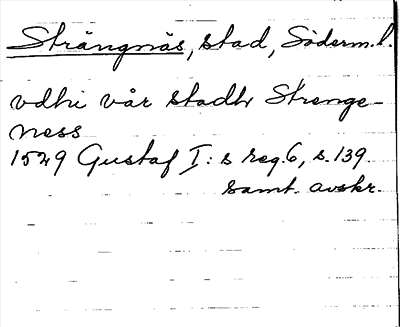 Strängnäs, stad, Söderm. l.
vdhi vår stadh Strenge-
ness
1529 Gustaf I:s reg. 6, s. 139.
samt. avskr.